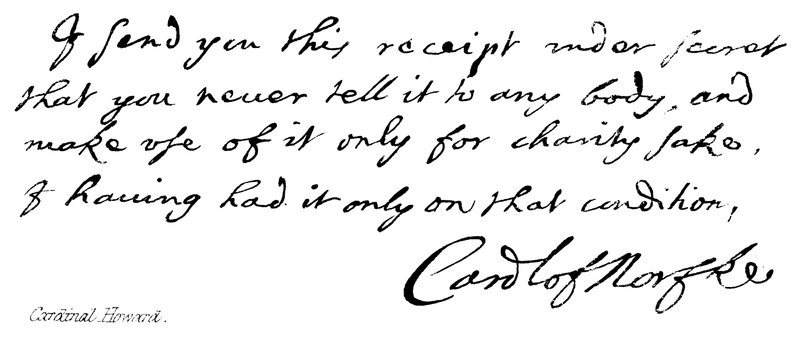 I send you this receipt vnder secret
that you neuer tell it to any body, and
make vse of it only for charity sake,
I hauing had it only on that condition,
Cardl of Norfke
Cardinal Howard.